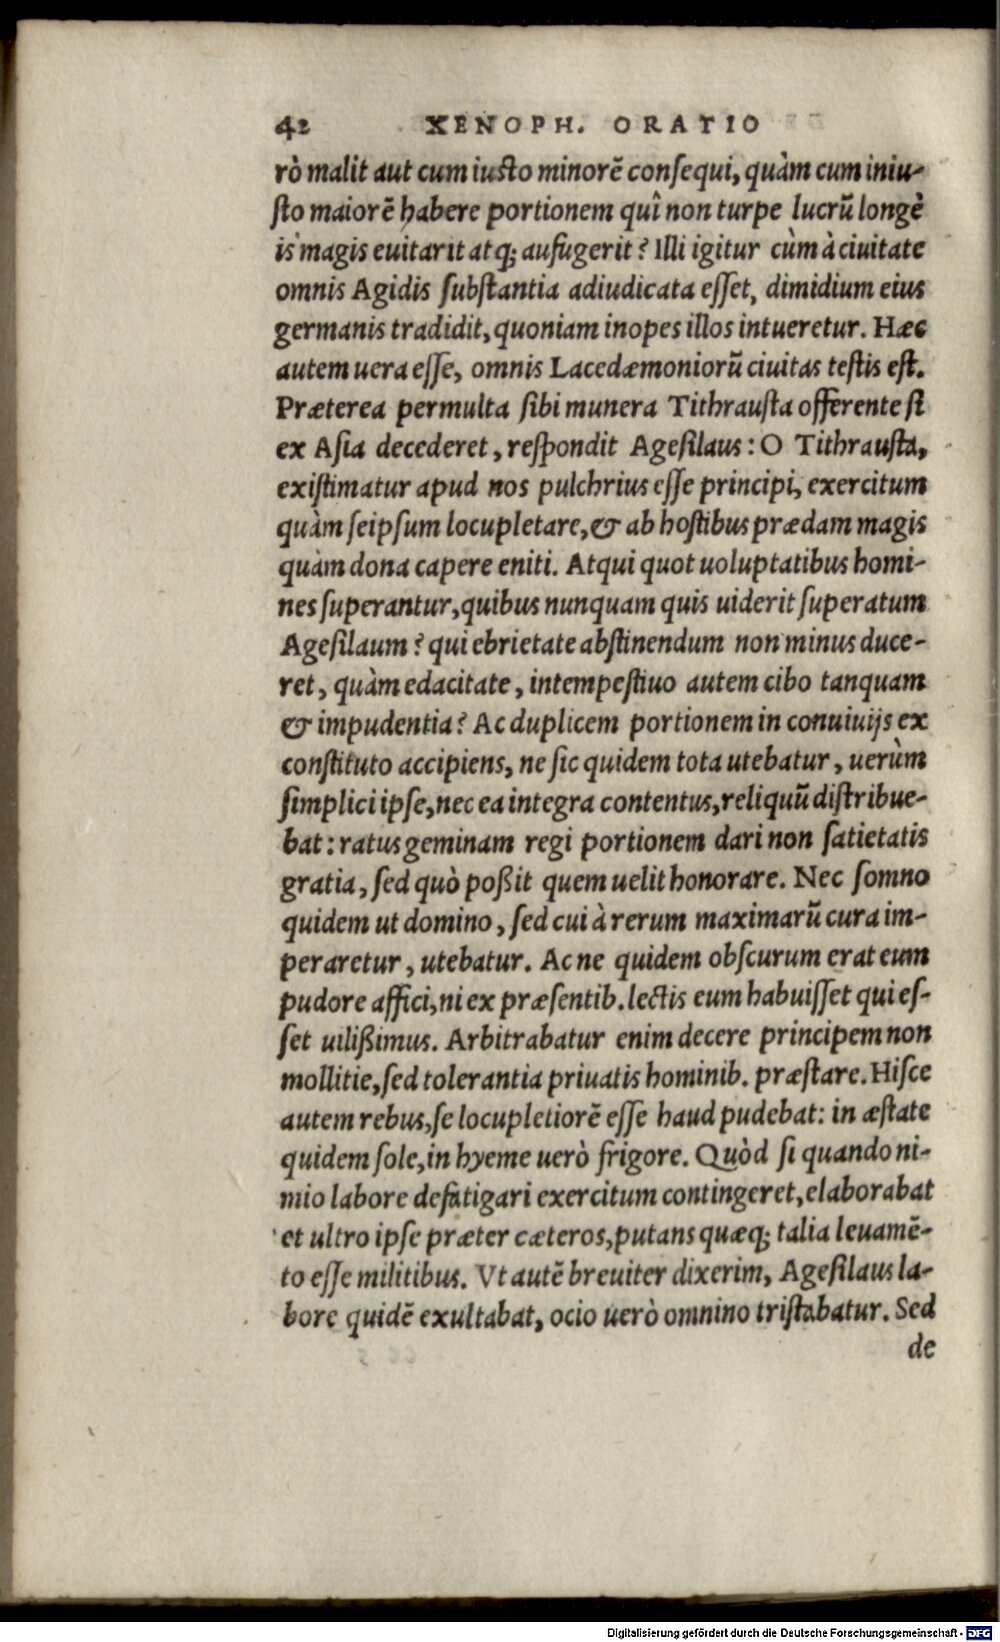 42 XENOPH. ORATIO
rò malit aut cum iusto minorē consequi, quàm cum iniu-
sto maiorē habere portionem quî non turpe lucrū longè
is magis euitarit atq; aufugerit? Illi igitur cùm à ciuitate
omnis Agidis substantia adiudicata esset, dimidium eius
germanis tradidit, quoniam inopes illos intueretur. Hæc
autem uera esse, omnis Lacedæmoniorū ciuitas testis est.
Præterea permulta sibi munera Tithrausta offerente si
ex Asia decederet, respondit Agesilaus: O Tithrausta,
existimatur apud nos pulchrius esse principi, exercitum
quàm seipsum locupletare, & ab hostibus prædam magis
quàm dona capere eniti. Atqui quot uoluptatibus homi-
nes superantur, quibus nunquam quis uiderit superatum
Agesilaum? qui ebrietate abstinendum non minus duce-
ret, quàm edacitate, intempestiuo autem cibo tanquam
& impudentia? Ac duplicem portionem in conuiuijs ex
constituto accipiens, ne sic quidem tota utebatur, uerùm
simplici ipse, nec ea integra contentus, reliquū distribue-
bat: ratus geminam regi portionem dari non satietatis
gratia, sed quò poßit quem uelit honorare. Nec somno
quidem ut domino, sed cui à rerum maximarū cura im-
peraretur, utebatur. Ac ne quidem obscurum erat eum
pudore affici, ni ex præsentib. lectis eum habuisset qui es-
set uilißimus. Arbitrabatur enim decere principem non
mollitie, sed tolerantia priuatis hominib. præstare. Hisce
autem rebus, se locupletiorē esse haud pudebat: in æstate
quidem sole, in hyeme uerò frigore. Quòd si quando ni-
mio labore defatigari exercitum contingeret, elaborabat
et ultro ipse præter cæteros, putans quæq; talia leuamē-
to esse militibus. Vt autē breuiter dixerim, Agesilaus la-
bore quidē exultabat, ocio uerò omnino tristabatur. Sed
de
Digitalisierung gefördert durch die Deutsche Forschungsgemeinschaft - DFG